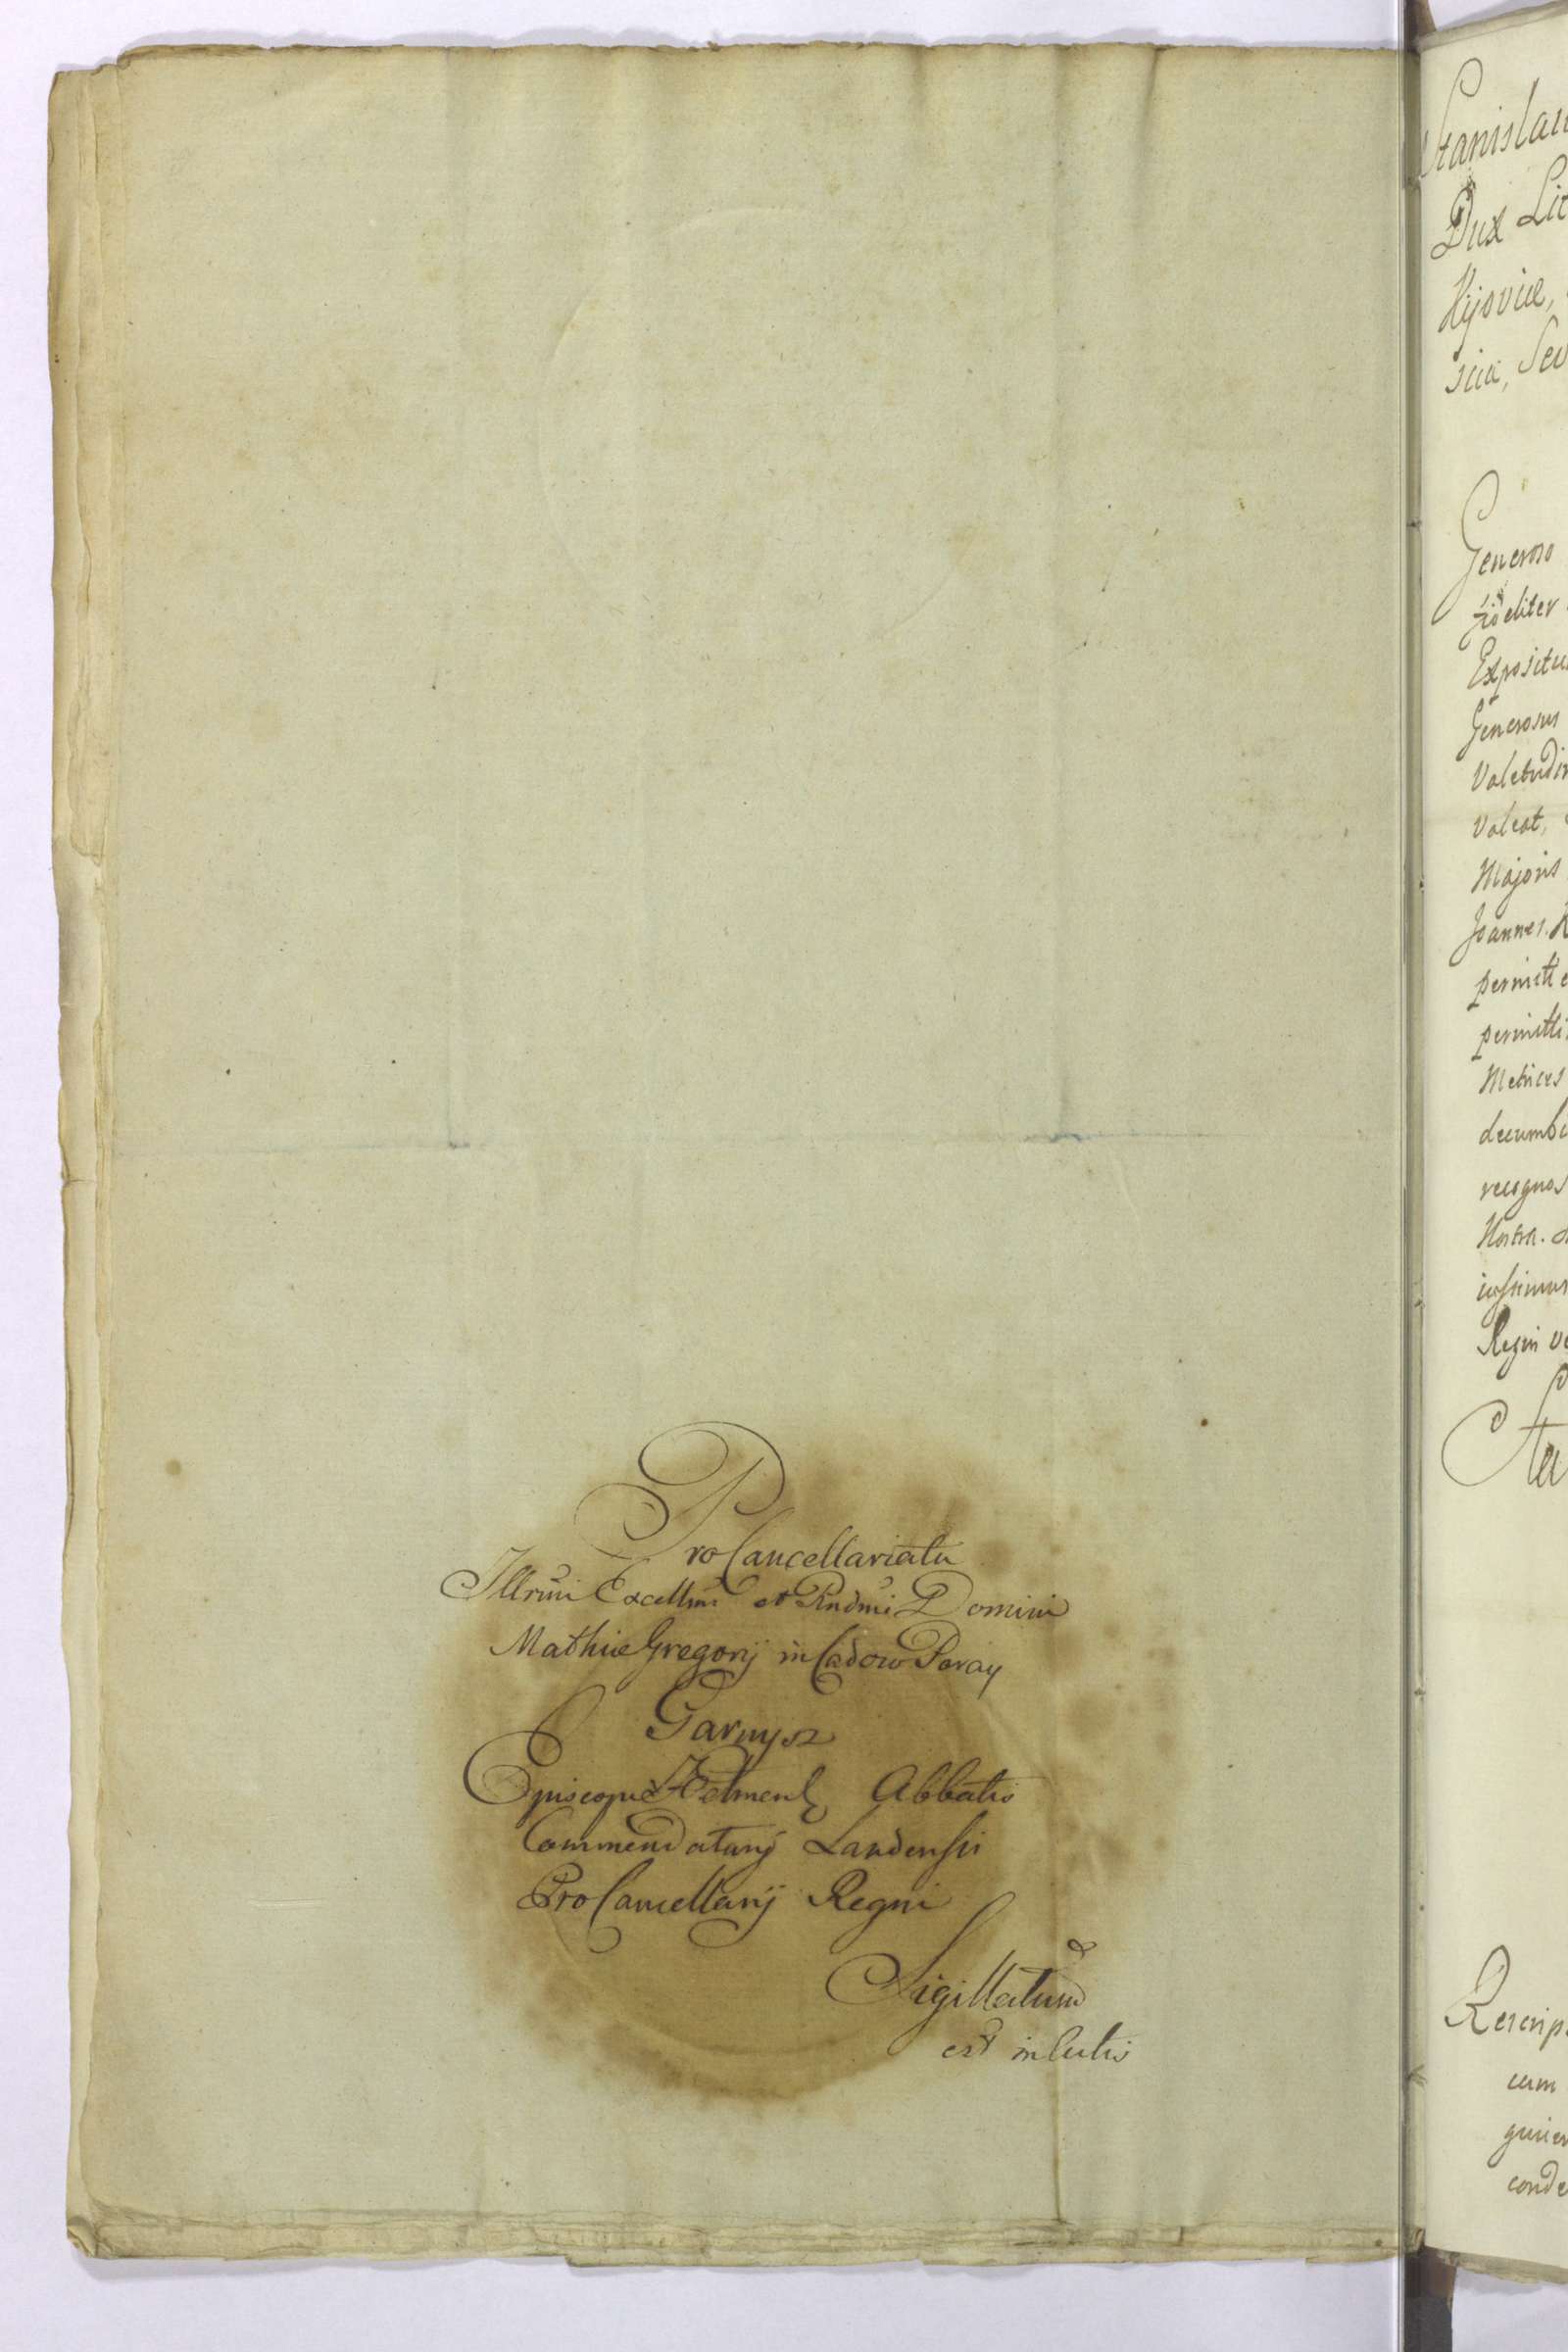 ProCancellariatu
Illrmi Excellmi et Rndmi Domini
Mathiæ Gregorij in Cadow Poray
Garnysz
Episcopi Helmens Abbatis
Commendatarij Landensis
ProCancellarij Regni
Sigillatum
est in Actis
Stanislau
Dux Lit
Kijoviæ,
siiæ, Sev
Generoso
fideliter
Expositu
Generosus
Valetudin
Valeat,
Majoris
Joannes. K
permitte
permitti
Metrices
decumbe
recognos
Nostra. d
iussimus
Regni ve
Sta
Rescrip
cum
gniew
conde